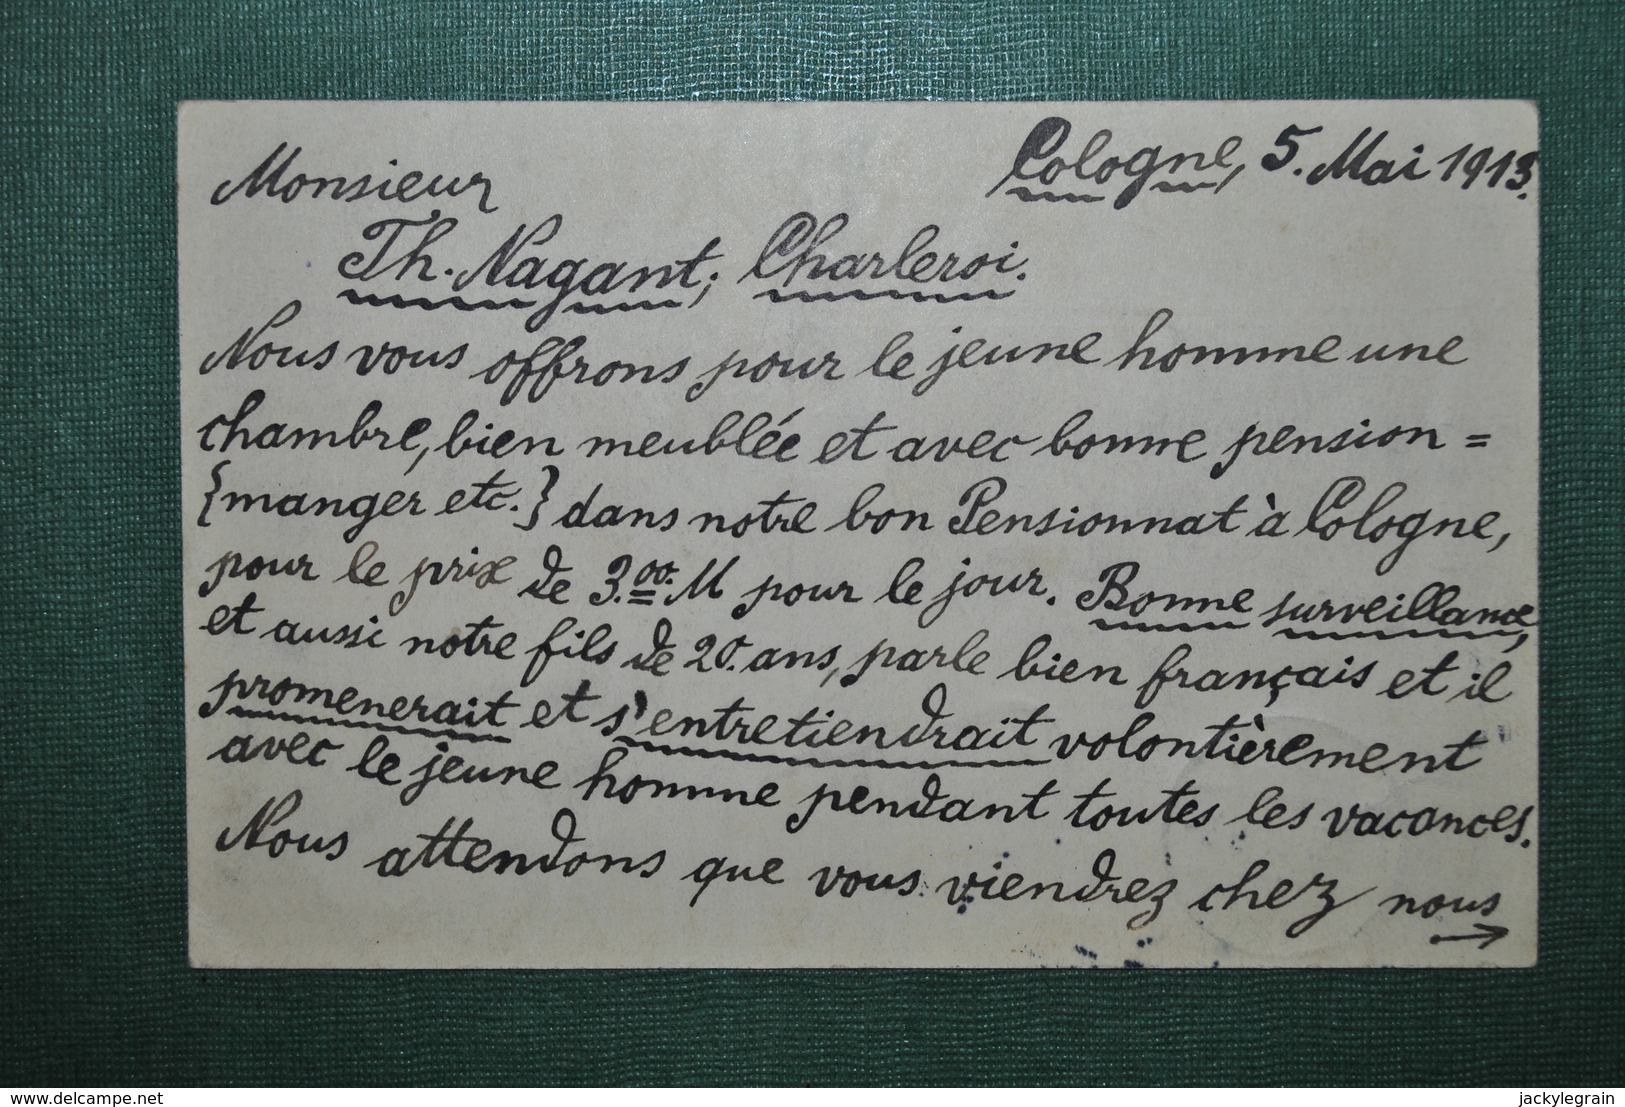 Cologne, 5. Mai 1913.
Monsieur
Th. Nagant, Charleroi.
Nous vous offrons pour le jeune homme une
chambre, bien meublée et avec bonne pension =
{manger etc.} dans notre bon Pensionnat à Cologne,
pour le prix de 3.00. M pour le jour. Bonne surveillance,
et aussi notre fils de 20. ans, parle bien français et il
promenerait et s'entretiendrait volontièrement
avec le jeune homme pendant toutes les vacances.
Nous attendons que vous viendrez chez nous
→
delcampe.net
jackylegrain